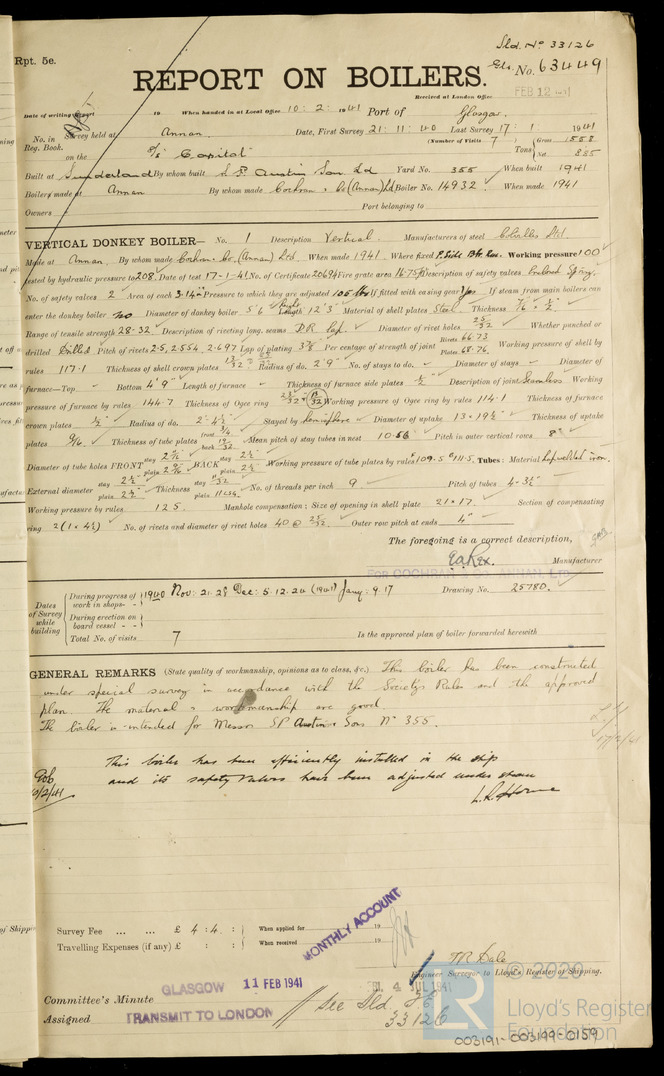 Sld. No 33126
Rpt. 5e.
Gls. No. 63449
REPORT ON BOILERS.
Received at London Office FEB 12 1941
Date of writing Report 19 When handed in at Local Office 10 : 2 : 1941 Port of Glasgow.
No. in Survey held at Annan. Date, First Survey 21 : 11 : 40 Last Survey 17 : 1 1941
Reg. Book. (Number of Visits 7 ) Gross 1558
on the S/S Capitol Tons Net 885
Built at Sunderland By whom built S. P. Austin & Son Ld Yard No. 355 When built 1941
Boilers made at Annan By whom made Cochran & Co (Annan) Ld Boiler No. 14932 When made 1941
Owners Port belonging to
VERTICAL DONKEY BOILER— No. 1 Description Vertical. Manufacturers of steel Colvilles Ltd
Made at Annan. By whom made Cochran & Co. (Annan) Ltd. When made 1941. Where fixed Working pressure 100
tested by hydraulic pressure to 208. Date of test 17-1-41. No. of Certificate 20694 Fire grate area 16.75 Description of safety valves Spring.
No. of safety valves 2 Area of each 3.14 Pressure to which they are adjusted 105 lbs If fitted with easing gear Yes If steam from main boilers can
enter the donkey boiler no Diameter of donkey boiler 5' 6" Height Length 12' 3" Material of shell plates Steel Thickness 7/16 & 1/2
Range of tensile strength 28-32 Description of riveting long. seams D.R. Lap. Diameter of rivet holes 25/32 Whether punched or
drilled Drilled Pitch of rivets 2.5, 2.556, 2.697 Lap of plating 3 7/8 Per centage of strength of joint Rivets 66.73 Plates 68.76 Working pressure of shell by
rules 117.1 Thickness of shell crown plates Radius of do. 2' 9" No. of stays to do. Diameter of stays Diameter of
furnace—Top Bottom 4' 9" Length of furnace Thickness of furnace side plates 1/2 Description of joint Seamless Working
pressure of furnace by rules 144.7 Thickness of Ogee ring Working pressure of Ogee ring by rules 114.1 Thickness of furnace
crown plates 1/2" Radius of do. 2' 4 1/2 Stayed by hemisphere Diameter of uptake 13 × 19 1/2" Thickness of uptake
plates 9/16 Thickness of tube plates front 3/4 back 19/32 Mean pitch of stay tubes in nest 10.56 Pitch in outer vertical rows 8"
Diameter of tube holes FRONT stay 2 9/16 plain 2 9/16 BACK stay 2 1/2 plain 2 1/2 Working pressure of tube plates by rules 109.5 111.5 Tubes: Material Lapwelded iron.
External diameter stay 2 1/2 plain 2 1/2 Thickness stay plain 11 LSG. No. of threads per inch 9 Pitch of tubes 4-3 3/4
Working pressure by rules 125. Manhole compensation: Size of opening in shell plate 21 × 17. Section of compensating
ring 2(1 × 4 1/2) No. of rivets and diameter of rivet holes 40 @ 25/32 Outer row pitch at ends 4"
The foregoing is a correct description,
FOR COCHRAN & CO., ANNAN, LTD.
E.A. Rex. Manufacturer
Dates of Survey while building During progress of work in shops - - 1940 Nov: 21.28 Dec: 5.12.24 (1941) Jany: 9.17 Drawing No. 25780.
During erection on board vessel - -
Total No. of visits 7 Is the approved plan of boiler forwarded herewith
GENERAL REMARKS (State quality of workmanship, opinions as to class, &c.) This boiler has been constructed
under special survey in accordance with the Society's Rules and the approved
plan. The material & workmanship are good.
The boiler is intended for Messrs SP Austin & Sons No 355.
This boiler has been efficiently installed in the ship
and its safety valves have been adjusted under steam
Survey Fee ... ... £ 4 : 4 : When applied for 19
Travelling Expenses (if any) £ : : When received 19
MONTHLY ACCOUNT
T.R. Dale
Engineer Surveyor to Lloyd's Register of Shipping.
GLASGOW 11 FEB 1941
4 JUL 1941
Committee's Minute
Assigned See Sld. F.E. 33126
TRANSMIT TO LONDON
© 2020
LR
Lloyd's Register
Foundation
003191-003199-0159